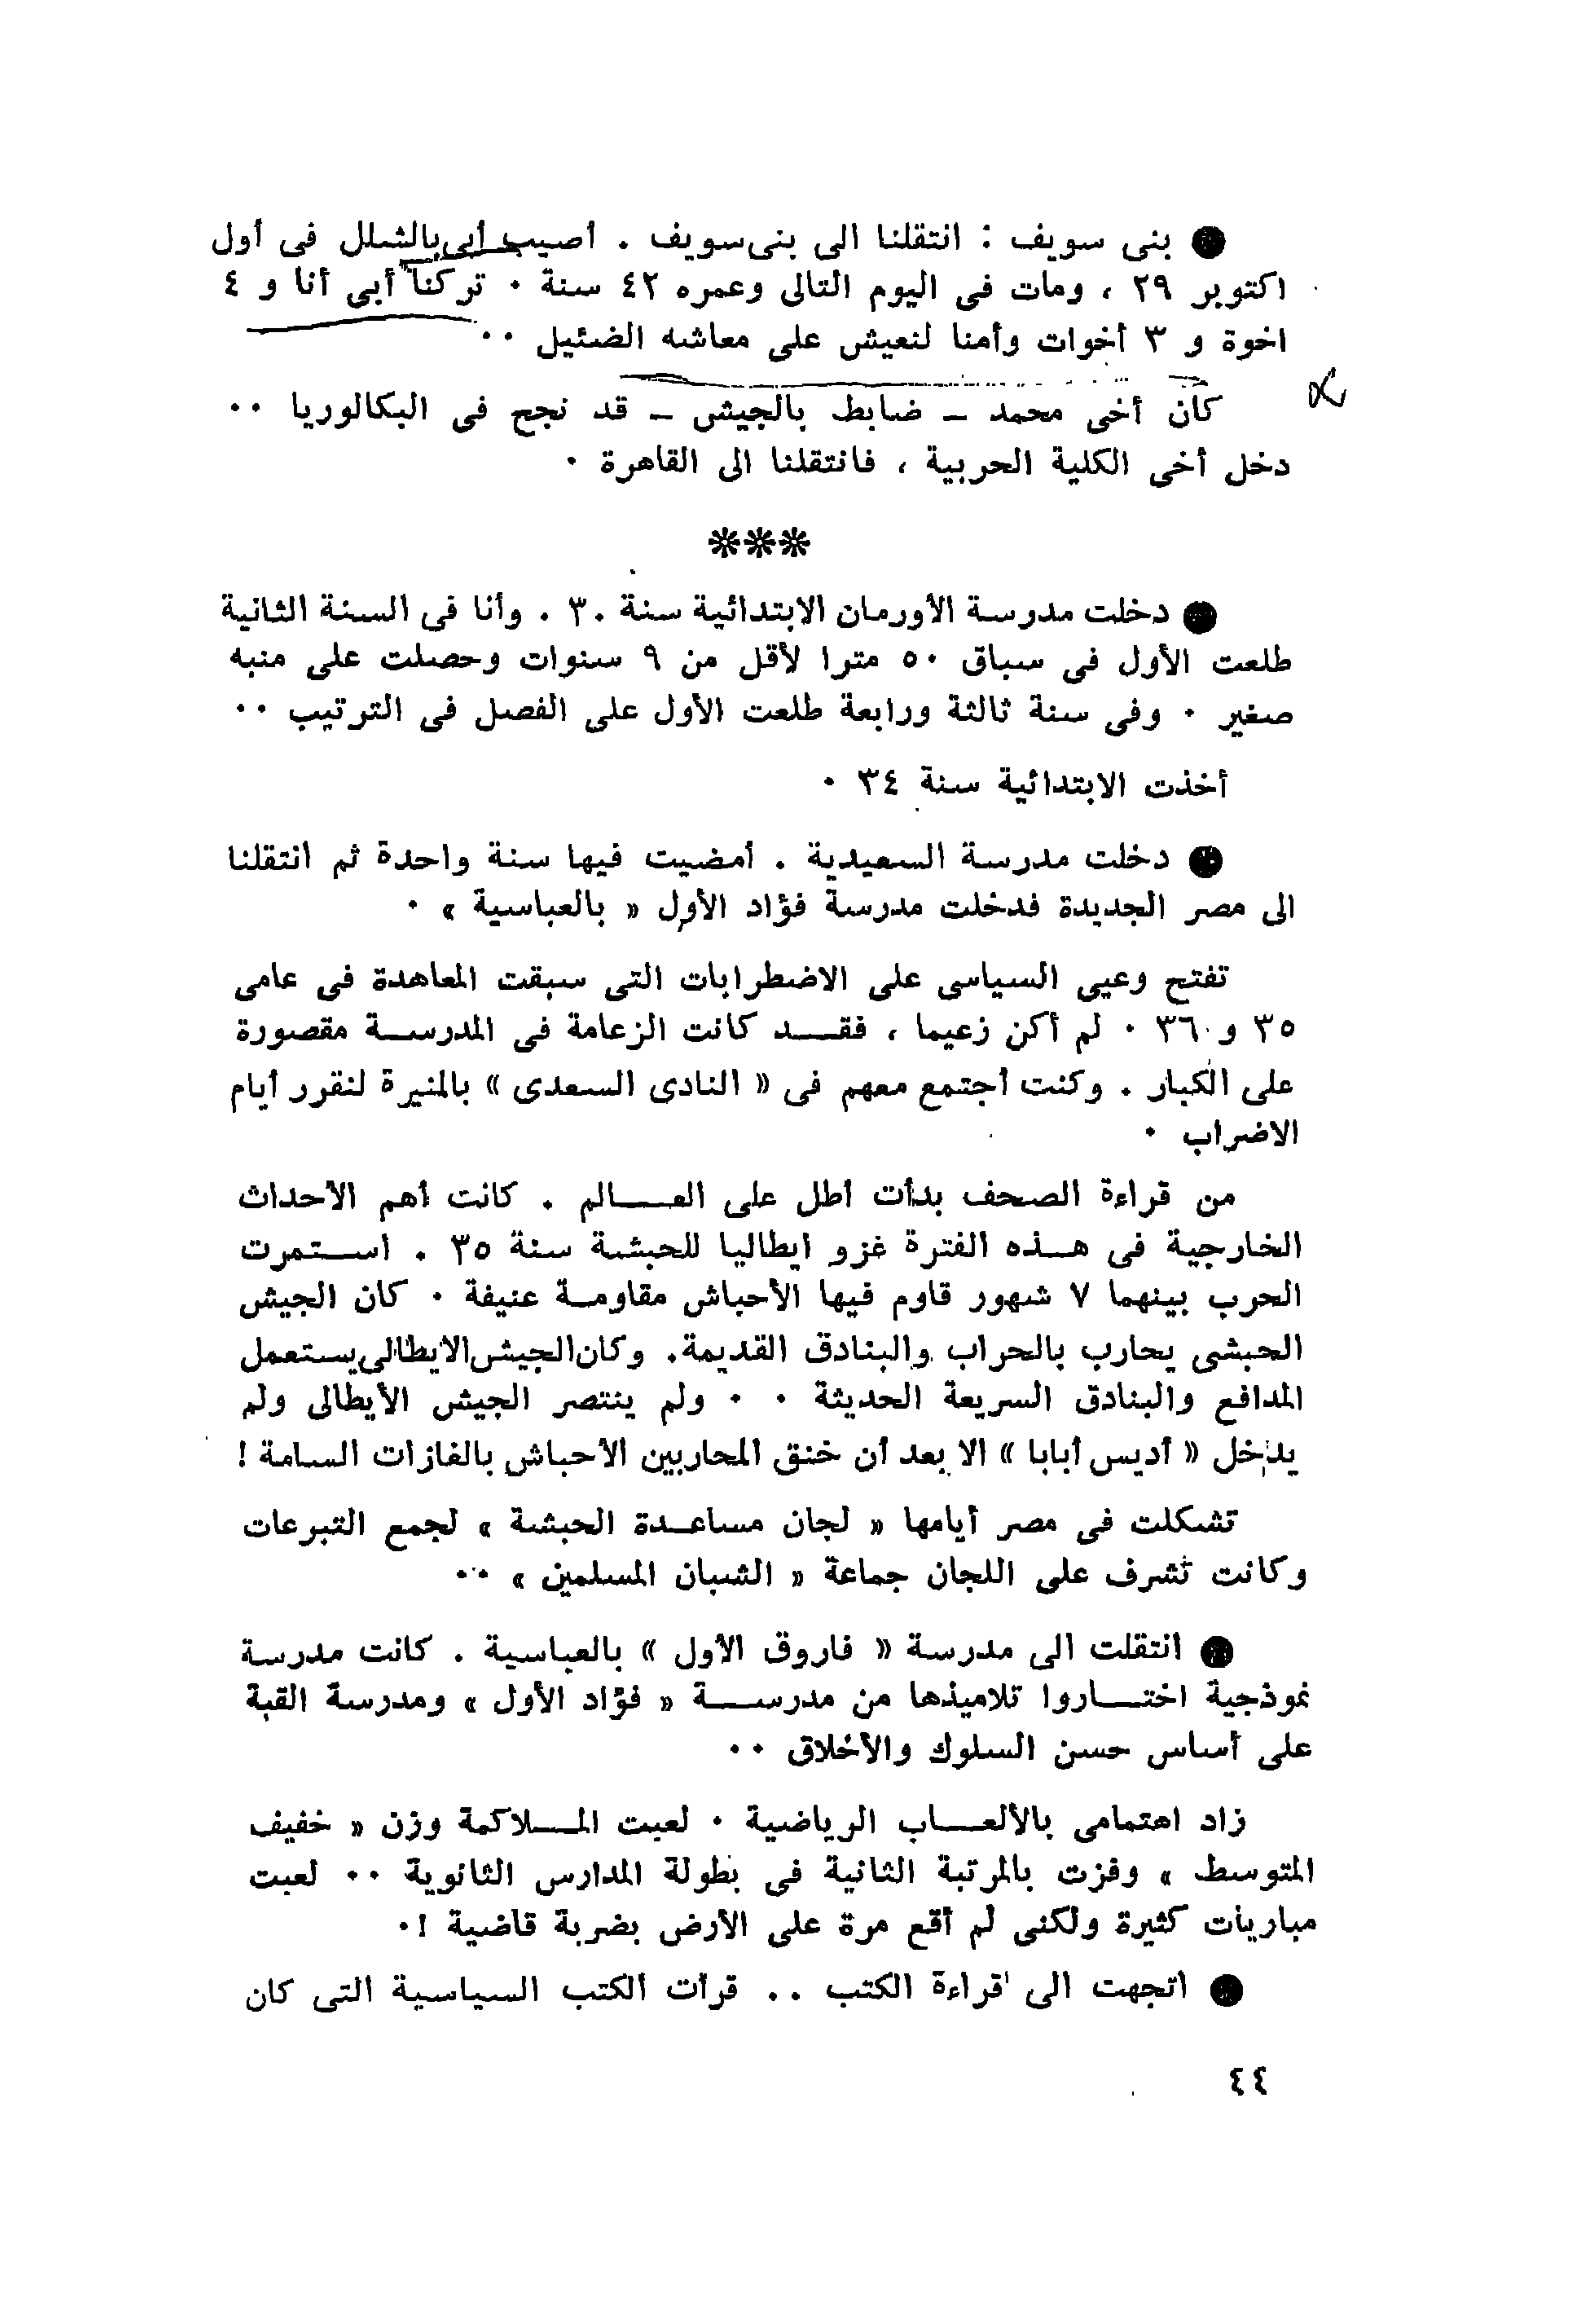 ● بنى سويف : انتقلنا الى بنى سويف . أصيب أبى بالشلل فى أول
اكتوبر ٢٩ ، ومات فى اليوم التالى وعمره ٤٢ سنة . تركنا أبى أنا و ٤
اخوة و ٣ أخوات وأمنا لنعيش على معاشه الضئيل ..
كان أخى محمد – ضابط بالجيش – قد نجح فى البكالوريا ..
دخل أخى الكلية الحربية ، فانتقلنا الى القاهرة .
***
● دخلت مدرسة الأورمان الابتدائية سنة ٣٠ . وأنا فى السنة الثانية
طلعت الأول فى سباق ٥٠ مترا لأقل من ٩ سنوات وحصلت على منبه
صغير . وفى سنة ثالثة ورابعة طلعت الأول على الفصل فى الترتيب ..
أخذت الابتدائية سنة ٣٤ .
● دخلت مدرسة السعيدية . أمضيت فيها سنة واحدة ثم انتقلنا
الى مصر الجديدة فدخلت مدرسة فؤاد الأول « بالعباسية » .
تفتح وعيى السياسى على الاضطرابات التى سبقت المعاهدة فى عامى
٣٥ و ٣٦ . لم أكن زعيما ، فقد كانت الزعامة فى المدرسة مقصورة
على الكبار . وكنت أجتمع معهم فى « النادى السعدى » بالمنيرة لنقرر أيام
الاضراب .
من قراءة الصحف بدأت أطل على العالم . كانت أهم الأحداث
الخارجية فى هذه الفترة غزو ايطاليا للحبشة سنة ٣٥ . استمرت
الحرب بينهما ٧ شهور قاوم فيها الأحباش مقاومة عنيفة . كان الجيش
الحبشى يحارب بالحراب والبنادق القديمة. وكان الجيش الايطالى يستعمل
المدافع والبنادق السريعة الحديثة . . ولم ينتصر الجيش الأيطالى ولم
يدخل « أديس أبابا » الا بعد أن خنق المحاربين الأحباش بالغازات السامة !
تشكلت فى مصر أيامها « لجان مساعدة الحبشة » لجمع التبرعات
وكانت تشرف على اللجان جماعة « الشبان المسلمين » ..
● انتقلت الى مدرسة « فاروق الأول » بالعباسية . كانت مدرسة
نموذجية اختاروا تلاميذها من مدرسة « فؤاد الأول » ومدرسة القبة
على أساس حسن السلوك والأخلاق ..
زاد اهتمامى بالألعاب الرياضية . لعبت الملاكمة وزن « خفيف
المتوسط » وفزت بالمرتبة الثانية فى بطولة المدارس الثانوية .. لعبت
مباريات كثيرة ولكنى لم أقع مرة على الأرض بضربة قاضية !.
● اتجهت الى قراءة الكتب .. قرأت الكتب السياسية التى كان
٤٤